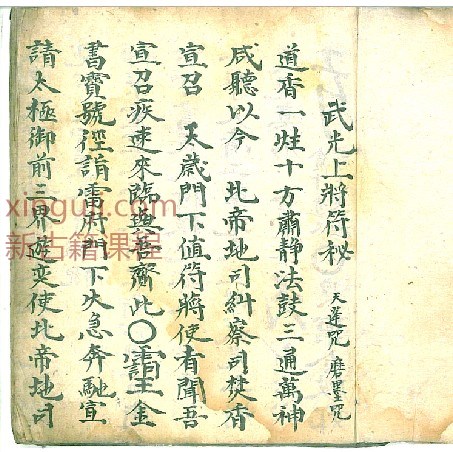 武光上將符秘 天蓬咒 磨墨咒
道香一炷十方肅静法鼓三通萬神
咸聽以今 北帝地司糾察司焚香
宣召 太歲門下值符將使者聞吾
宣召疾速來臨與齋此〇金
書寶號徑詣雷府門下火急奔馳宣
請太極御前三界遊奕使北帝地司
新古籍课程